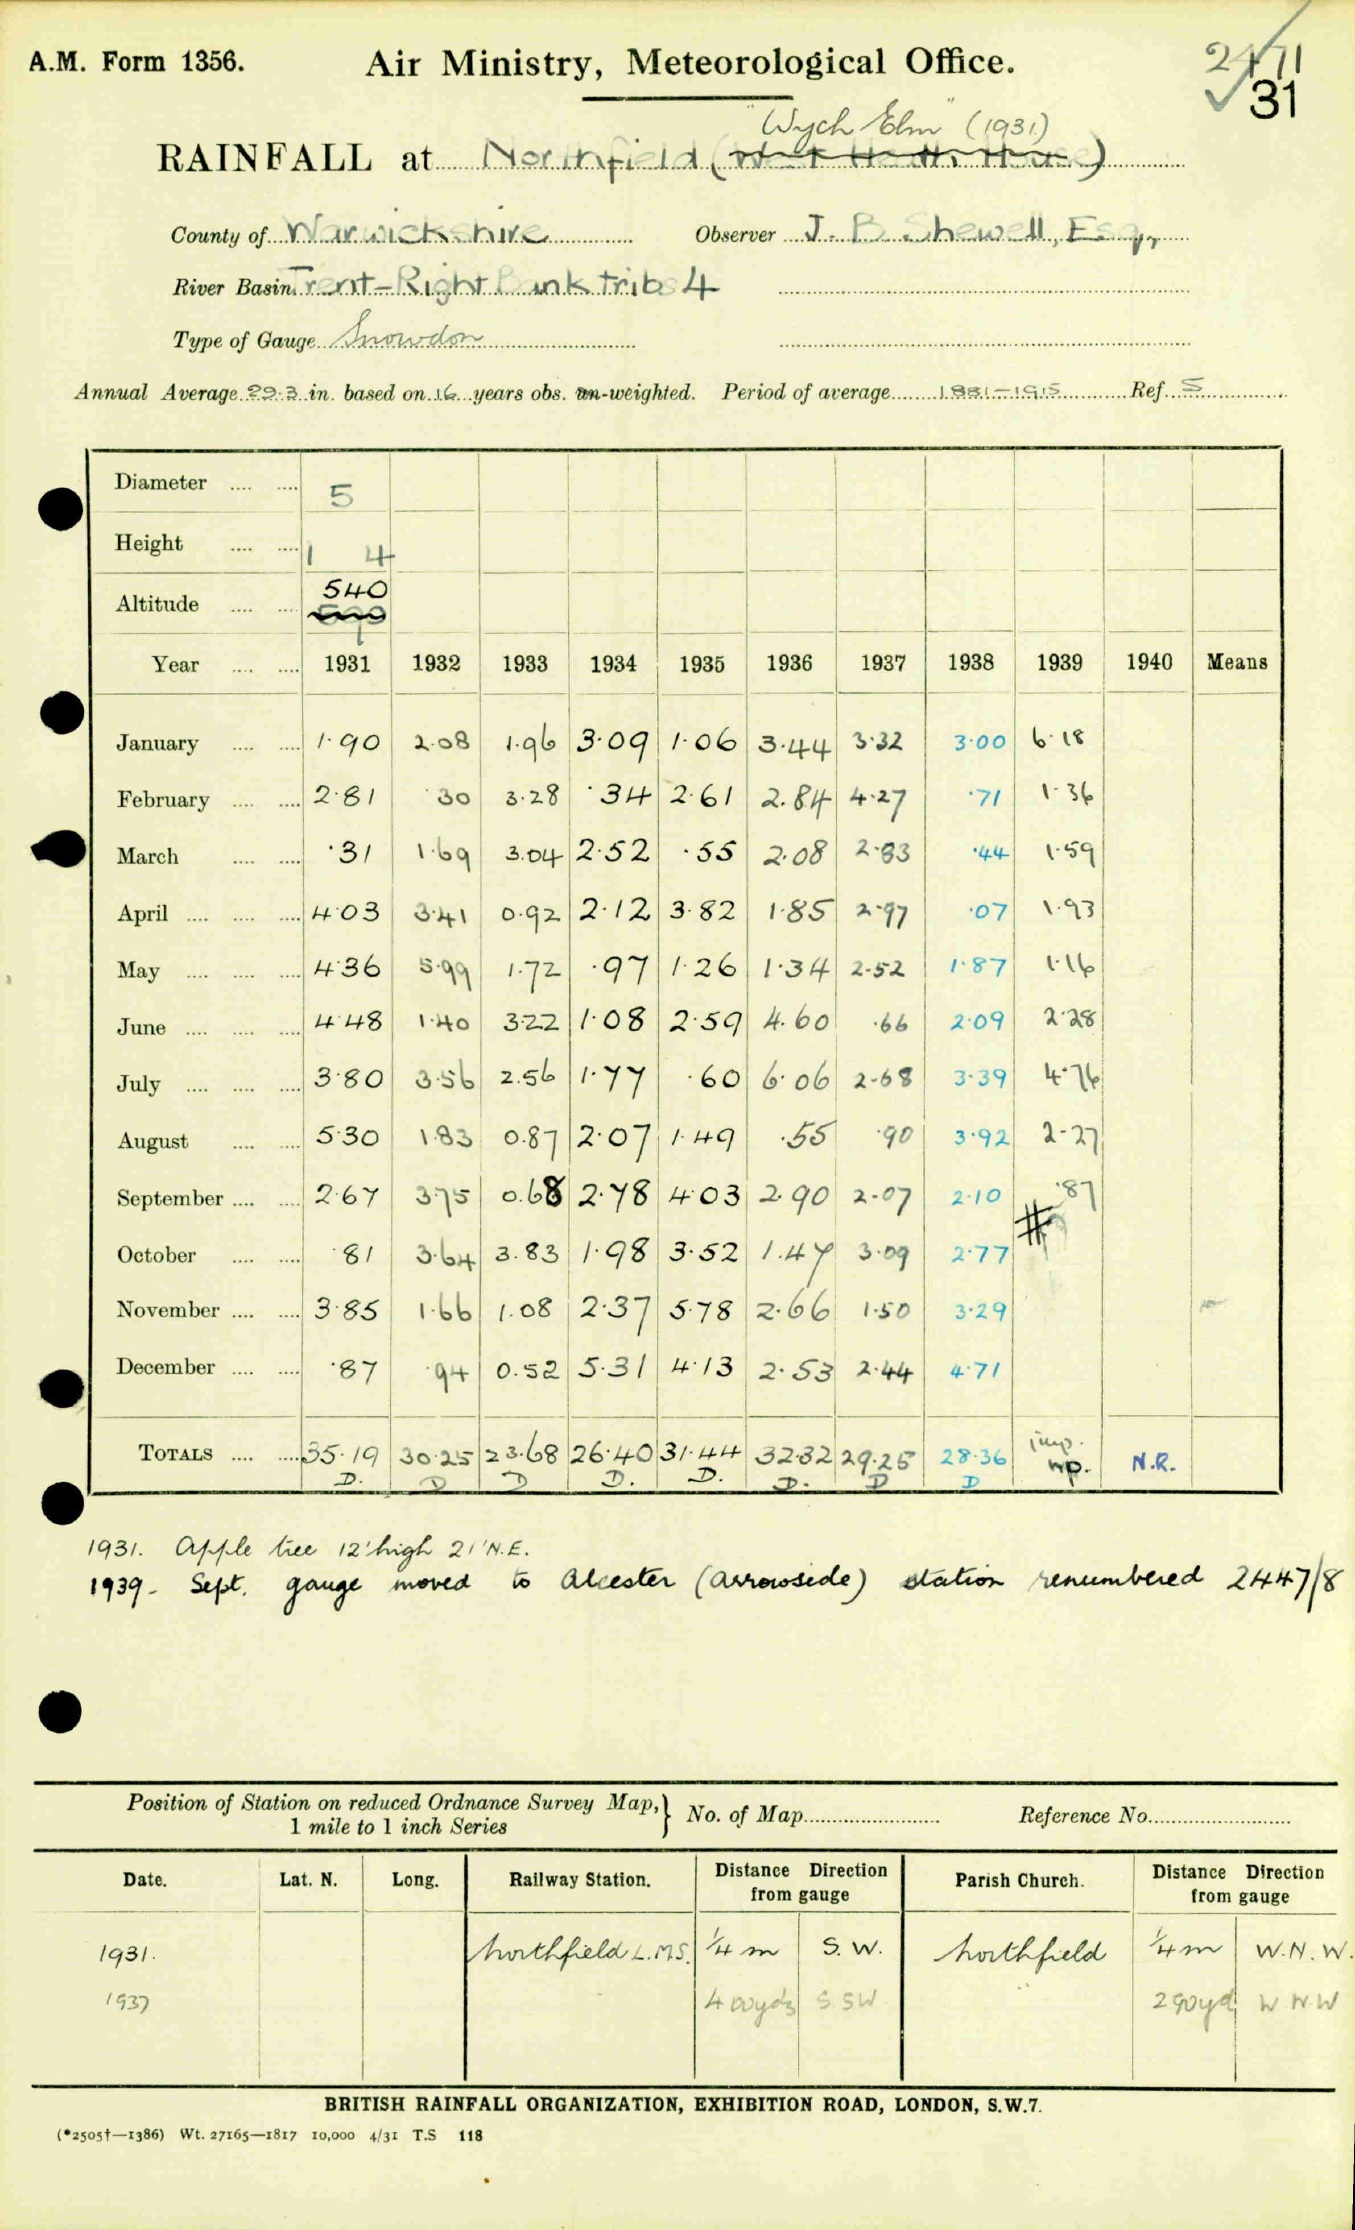 A.M. Form 1356. Air Ministry, Meteorological Office. 2471
31
"Wych Elm" (1931)
RAINFALL at Northfield (West Heath House)
County of Warwickshire Observer J. B. Shewell, Esq.,
River Basin Trent-Right Bank tribs 4
Type of Gauge Snowdon
Annual Average 29.3 in. based on 16 years obs. un-weighted. Period of average 1881-1915 Ref. S
Diameter 5
Height 1 4
Altitude 540
Year 1931 1932 1933 1934 1935 1936 1937 1938 1939 1940 Means
January 1.90 2.08 1.96 3.09 1.06 3.44 3.32 3.00 6.18
February 2.81 .30 3.28 .34 2.61 2.84 4.27 .71 1.36
March .31 1.69 3.04 2.52 .55 2.08 2.83 .44 1.59
April 4.03 3.41 0.92 2.12 3.82 1.85 2.97 .07 1.93
May 4.36 5.99 1.72 .97 1.26 1.34 2.52 1.87 1.16
June 4.48 1.40 3.22 1.08 2.59 4.60 .66 2.09 2.28
July 3.80 3.56 2.56 1.77 .60 6.06 2.68 3.39 4.76
August 5.30 1.83 0.87 2.07 1.49 .55 .90 3.92 2.27
September 2.67 3.75 0.68 2.78 4.03 2.90 2.07 2.10 .87
October .81 3.64 3.83 1.98 3.52 1.47 3.09 2.77 #
November 3.85 1.66 1.08 2.37 5.78 2.66 1.50 3.29
December .87 .94 0.52 5.31 4.13 2.53 2.44 4.71
TOTALS 35.19 30.25 23.68 26.40 31.44 32.32 29.25 28.36 imp. N.R.
D. D D D. D. D. D D
1931. Apple tree 12' high 21' N.E.
1939 - Sept. gauge moved to Alcester (Arrowside) station renumbered 2447/8
Position of Station on reduced Ordnance Survey Map, 1 mile to 1 inch Series } No. of Map Reference No.
Date. Lat. N. Long. Railway Station. Distance Direction from gauge Parish Church. Distance Direction from gauge
1931. Northfield L.M.S. 1/4 m S.W. Northfield 1/4 m W.N.W.
1937 400yds S.SW 290yd W N W
BRITISH RAINFALL ORGANIZATION, EXHIBITION ROAD, LONDON, S.W.7.
(*2505†—1386) Wt. 27165—1817 10,000 4/31 T.S 118